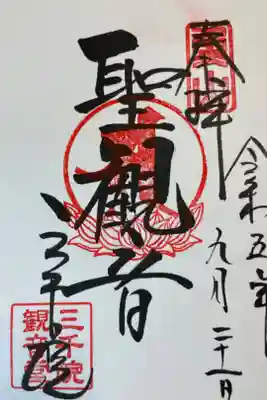 奉拝
令和五年
九月二十一日
聖観音
三千院
三千院
観音堂